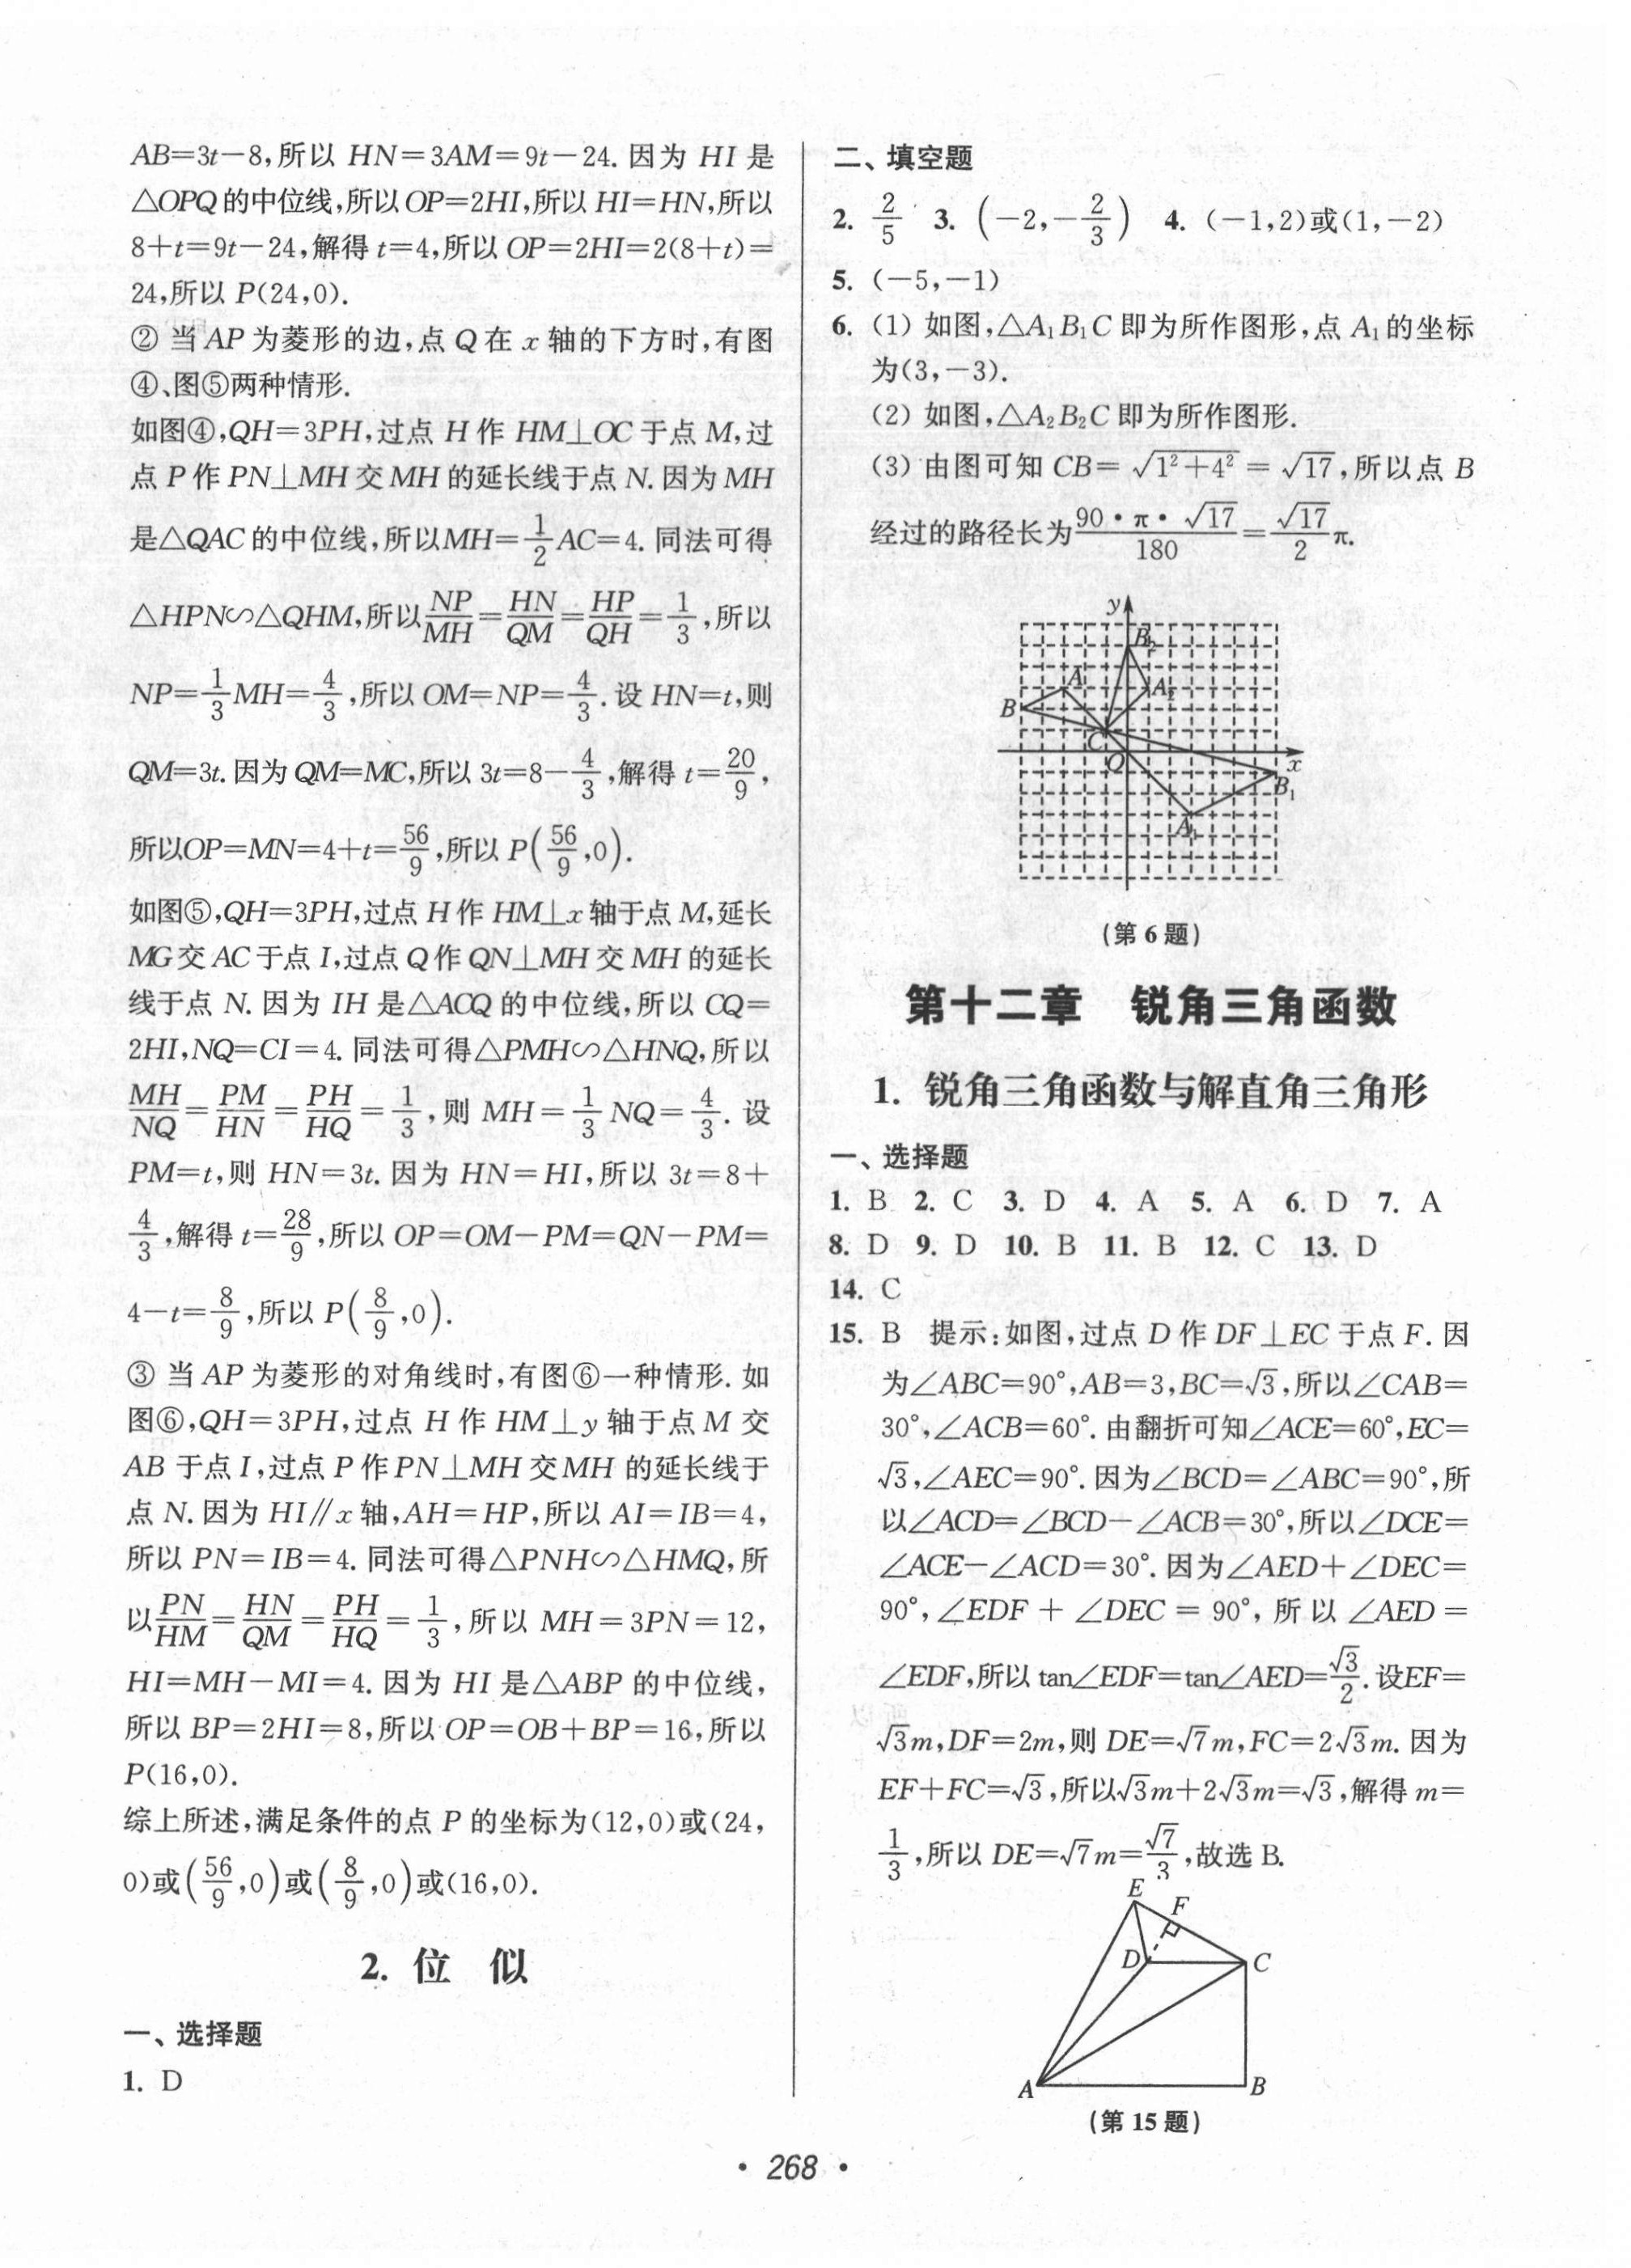 AB=3t-8,所以 HN=3AM=9t-24. 因为 HI 是
△OPQ 的中位线,所以 OP=2HI,所以 HI=HN,所以
8+t=9t-24,解得 t=4,所以 OP=2HI=2(8+t)=
24,所以 P(24,0).
② 当 AP 为菱形的边,点 Q 在 x 轴的下方时,有图
④、图⑤两种情形.
如图④,QH=3PH,过点 H 作 HM⊥OC 于点 M,过
点 P 作 PN⊥MH 交 MH 的延长线于点 N. 因为 MH
是△QAC 的中位线,所以MH=1/2 AC=4. 同法可得
△HPN∽△QHM,所以NP/MH=HN/QM=HP/QH=1/3,所以
NP=1/3 MH=4/3,所以 OM=NP=4/3. 设 HN=t,则
QM=3t. 因为 QM=MC,所以 3t=8-4/3,解得 t=20/9,
所以OP=MN=4+t=56/9,所以 P(56/9,0).
如图⑤,QH=3PH,过点 H 作 HM⊥x 轴于点 M,延长
MG 交 AC 于点 I,过点 Q 作 QN⊥MH 交 MH 的延长
线于点 N. 因为 IH 是△ACQ 的中位线,所以 CQ=
2HI,NQ=CI=4. 同法可得△PMH∽△HNQ,所以
MH/NQ=PM/HN=PH/HQ=1/3,则 MH=1/3 NQ=4/3. 设
PM=t,则 HN=3t. 因为 HN=HI,所以 3t=8+
4/3,解得 t=28/9,所以 OP=OM-PM=QN-PM=
4-t=8/9,所以 P(8/9,0).
③ 当 AP 为菱形的对角线时,有图⑥一种情形. 如
图⑥,QH=3PH,过点 H 作 HM⊥y 轴于点 M 交
AB 于点 I,过点 P 作 PN⊥MH 交 MH 的延长线于
点 N. 因为 HI∥x 轴,AH=HP,所以 AI=IB=4,
所以 PN=IB=4. 同法可得△PNH∽△HMQ,所
以PN/HM=HN/QM=PH/HQ=1/3,所以 MH=3PN=12,
HI=MH-MI=4. 因为 HI 是△ABP 的中位线,
所以 BP=2HI=8,所以 OP=OB+BP=16,所以
P(16,0).
综上所述,满足条件的点 P 的坐标为(12,0)或(24,
0)或(56/9,0)或(8/9,0)或(16,0).
2. 位 似
一、选择题
1. D
二、填空题
2. 2/5 3. (-2,-2/3) 4. (-1,2)或(1,-2)
5. (-5,-1)
6. (1) 如图,△A₁B₁C 即为所作图形,点 A₁ 的坐标
为(3,-3).
(2) 如图,△A₂B₂C 即为所作图形.
(3) 由图可知 CB=√(1²+4²)=√17,所以点 B
经过的路径长为(90·π·√17)/180=√17/2 π.
y
B₂
A
A₂
B
C
O
x
B₁
A₁
(第 6 题)
第十二章 锐角三角函数
1. 锐角三角函数与解直角三角形
一、选择题
1. B 2. C 3. D 4. A 5. A 6. D 7. A
8. D 9. D 10. B 11. B 12. C 13. D
14. C
15. B 提示:如图,过点 D 作 DF⊥EC 于点 F. 因
为∠ABC=90°,AB=3,BC=√3,所以∠CAB=
30°,∠ACB=60°. 由翻折可知∠ACE=60°,EC=
√3,∠AEC=90°. 因为∠BCD=∠ABC=90°,所
以∠ACD=∠BCD-∠ACB=30°,所以∠DCE=
∠ACE-∠ACD=30°. 因为∠AED+∠DEC=
90°,∠EDF+∠DEC=90°,所以∠AED=
∠EDF,所以 tan∠EDF=tan∠AED=√3/2. 设EF=
√3m,DF=2m,则 DE=√7m,FC=2√3m. 因为
EF+FC=√3,所以√3m+2√3m=√3,解得 m=
1/3,所以 DE=√7m=√7/3,故选 B.
E
F
D
C
A
B
(第 15 题)
· 268 ·